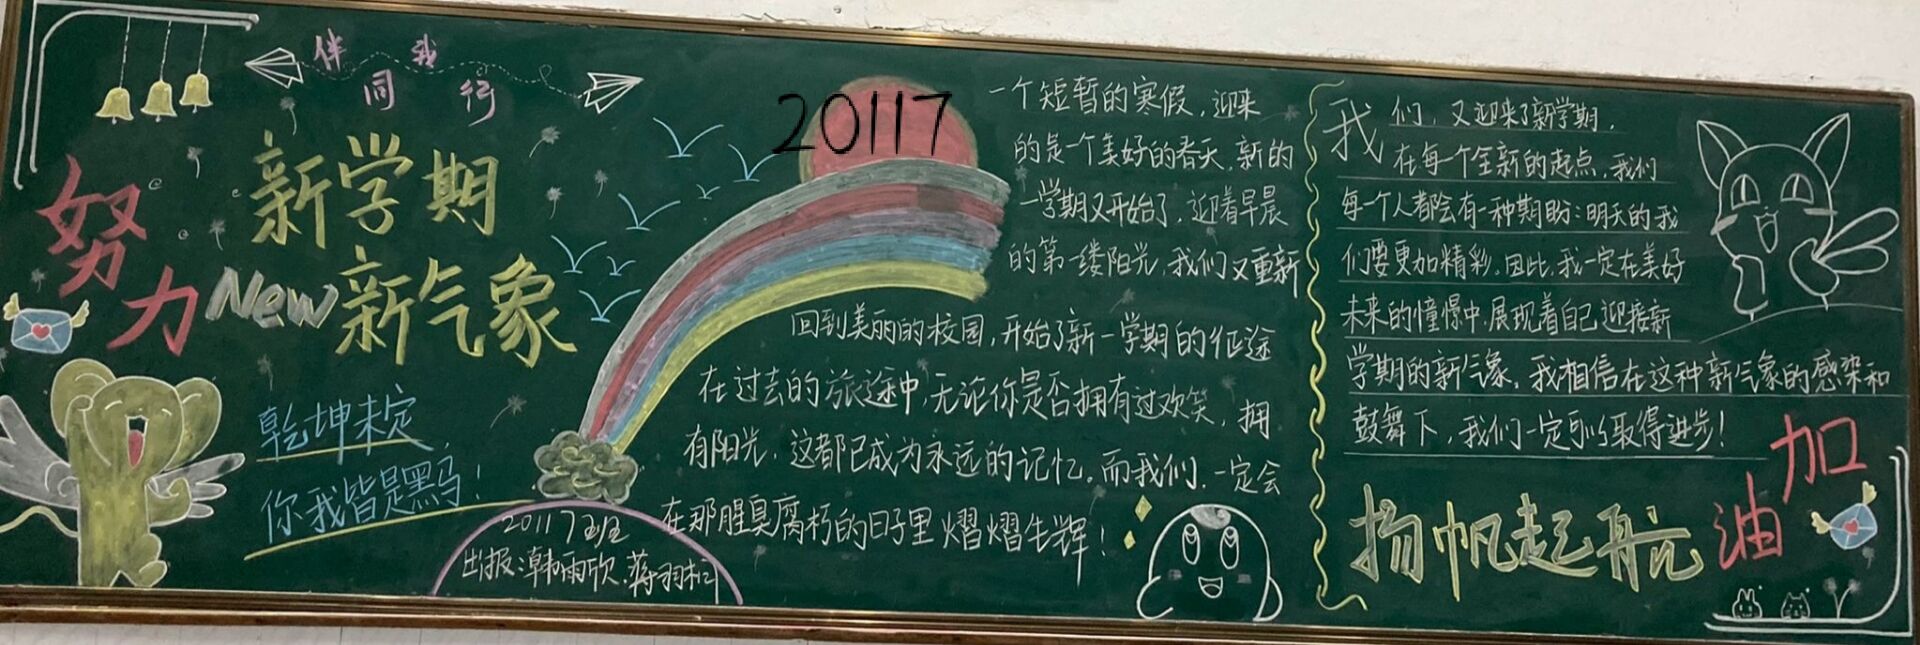 伴我
同行
努力
新学期
New新气象
乾坤未定
你我皆是黑马!
20117
20117班
出报:韩雨欣.蒋羽
一个短暂的寒假,迎来
的是一个美好的春天,新的
一学期又开始了,迎着早晨
的第一缕阳光,我们又重新
回到美丽的校园,开始了新一学期的征途
在过去的旅途中,无论你是否拥有过欢笑,拥
有阳光,这都已成为永远的记忆。而我们,一定会
在那腥臭腐朽的日子里熠熠生辉!
我们,又迎来了新学期,
在每一个全新的起点,我们
每一个人都会有一种期盼:明天的我
们要更加精彩。因此,我一定在美好
未来的憧憬中,展现着自己迎接新
学期的新气象,我相信在这种新气象的感染和
鼓舞下,我们一定可以取得进步!
扬帆起航
加油